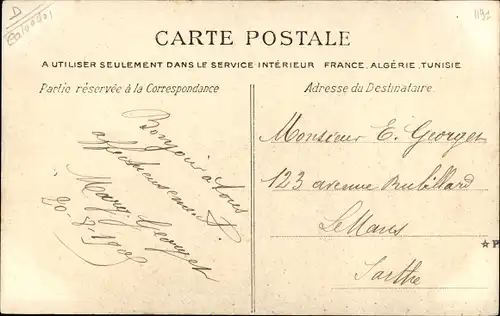 D
Calvados
1191
CARTE POSTALE
A UTILISER SEULEMENT DANS LE SERVICE INTÉRIEUR FRANCE, ALGÉRIE, TUNISIE
Partie réservée à la Correspondance
Adresse du Destinataire.
Bonjour à tous
affectueusement
Marg. Georget
20-8-1908
Monsieur E. Georget
123 avenue Rubillard
Le Mans
Sarthe